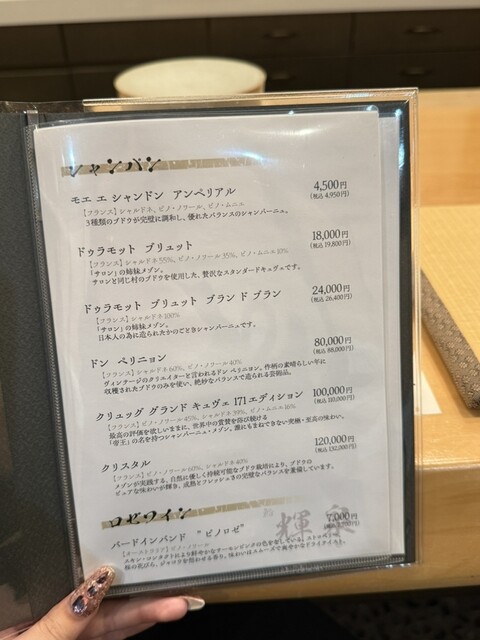 シャンパン
モエ エ シャンドン アンペリアル 4,500円
【フランス】シャルドネ、ピノ・ノワール、ピノ・ムニエ (税込 4,950円)
3種類のブドウが完璧に調和し、優れたバランスのシャンパーニュ。
ドゥラモット ブリュット 18,000円
【フランス】シャルドネ 55%、ピノ・ノワール 35%、ピノ・ムニエ 10% (税込 19,800円)
「サロン」の姉妹メゾン。
サロンと同じ村のブドウを使用した、贅沢なスタンダードキュヴェです。
ドゥラモット ブリュット ブラン ド ブラン 24,000円
【フランス】シャルドネ 100% (税込 26,400円)
「サロン」の姉妹メゾン。
日本人の為に造られたかのごときシャンパーニュです。
ドン ペリニョン 80,000円
【フランス】シャルドネ 60%、ピノ・ノワール 40% (税込 88,000円)
ヴィンテージのクリエイターと言われるドン ペリニョン。作柄の素晴らしい年に
収穫されたブドウのみを使い、絶妙なバランスで造られる芸術品。
クリュッグ グランド キュヴェ 171エディション 100,000円
【フランス】ピノ・ノワール 45%、シャルドネ 39%、ピノ・ムニエ 16% (税込 110,000円)
最高の評価を欲しいままに、世界中の賞賛を浴び続ける
「帝王」の名を持つシャンパーニュ・メゾン。誰にもまねできない究極・至高の味わい。
クリスタル 120,000円
【フランス】ピノ・ノワール 60%、シャルドネ 40% (税込 132,000円)
メゾンが実践する、自然に優しく持続可能なブドウ栽培により、ブドウの
ピュアな味わいが輝き、成熟とフレッシュさの完璧なバランスを兼備しています。
ロゼワイン
バードインバンド "ピノロゼ" 7,000円
【オーストラリア】ピノ・ノワール
輝